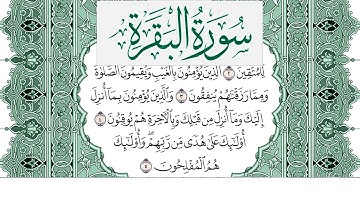 سُورَةُ البَقَرَةِ
لِلْمُتَّقِينَ ٢ الَّذِينَ يُؤْمِنُونَ بِالْغَيْبِ وَيُقِيمُونَ الصَّلَوٰةَ
وَمِمَّا رَزَقْنَٰهُمْ يُنفِقُونَ ٣ وَالَّذِينَ يُؤْمِنُونَ بِمَا أُنزِلَ
إِلَيْكَ وَمَا أُنزِلَ مِن قَبْلِكَ وَبِالْآخِرَةِ هُمْ يُوقِنُونَ ٤
أُو۟لَٰٓئِكَ عَلَىٰ هُدًى مِّن رَّبِّهِمْ ۖ وَأُو۟لَٰٓئِكَ
هُمُ الْمُفْلِحُونَ ٥